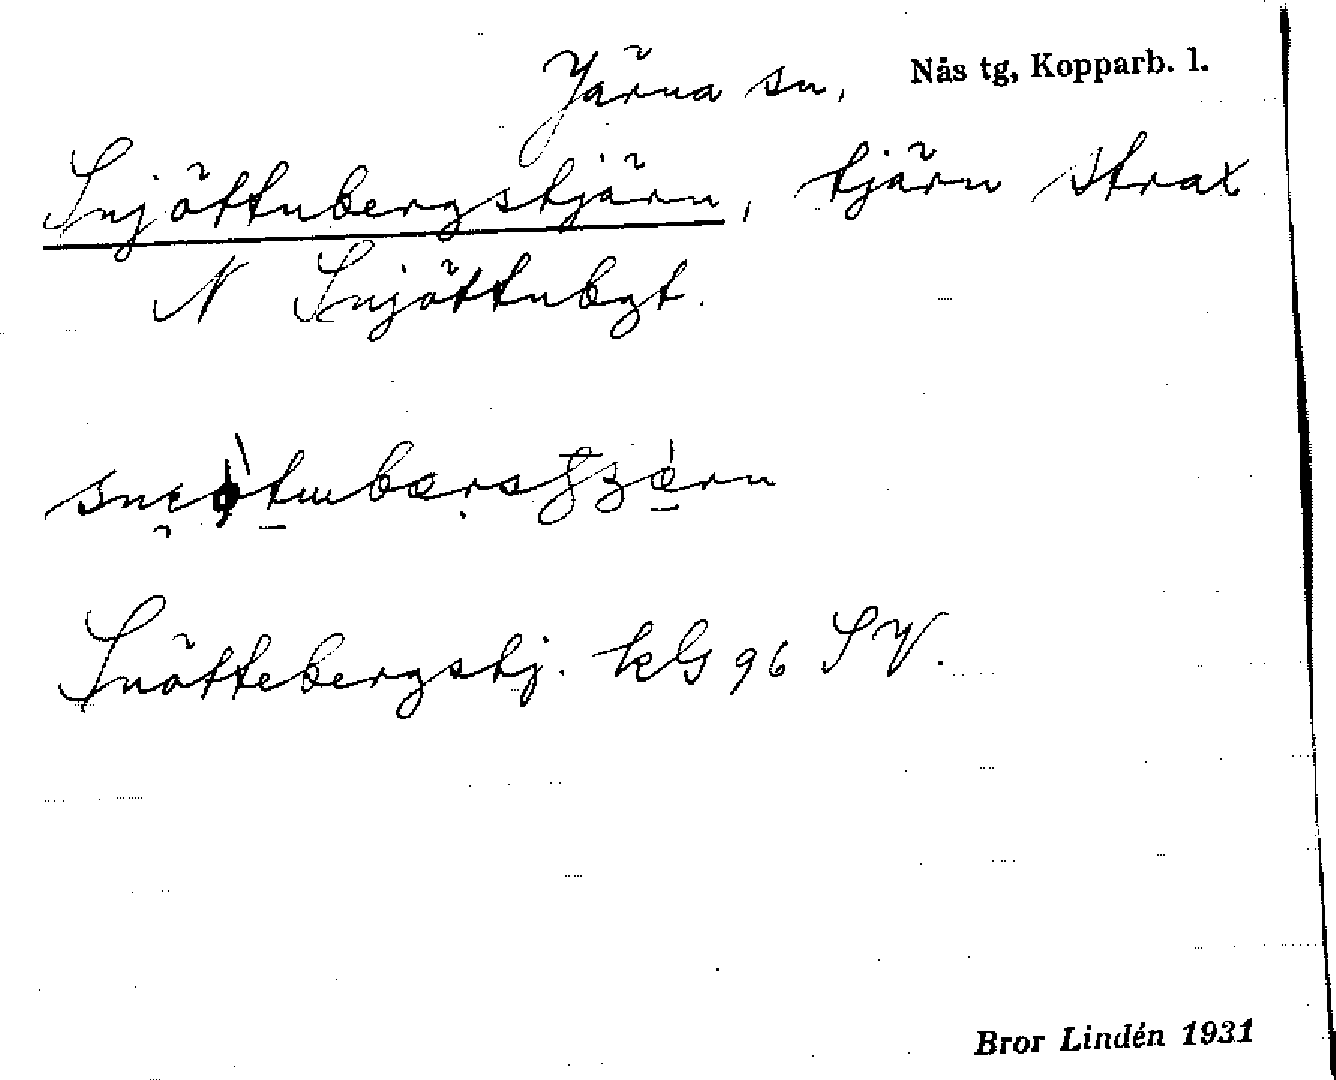 Järna sn, Nås tg, Kopparb. l.
Snjöttubergstjärn, tjärn strax
N Snjöttubgt.
Snöttebergstj. kG 96 SV.
Bror Lindén 1931